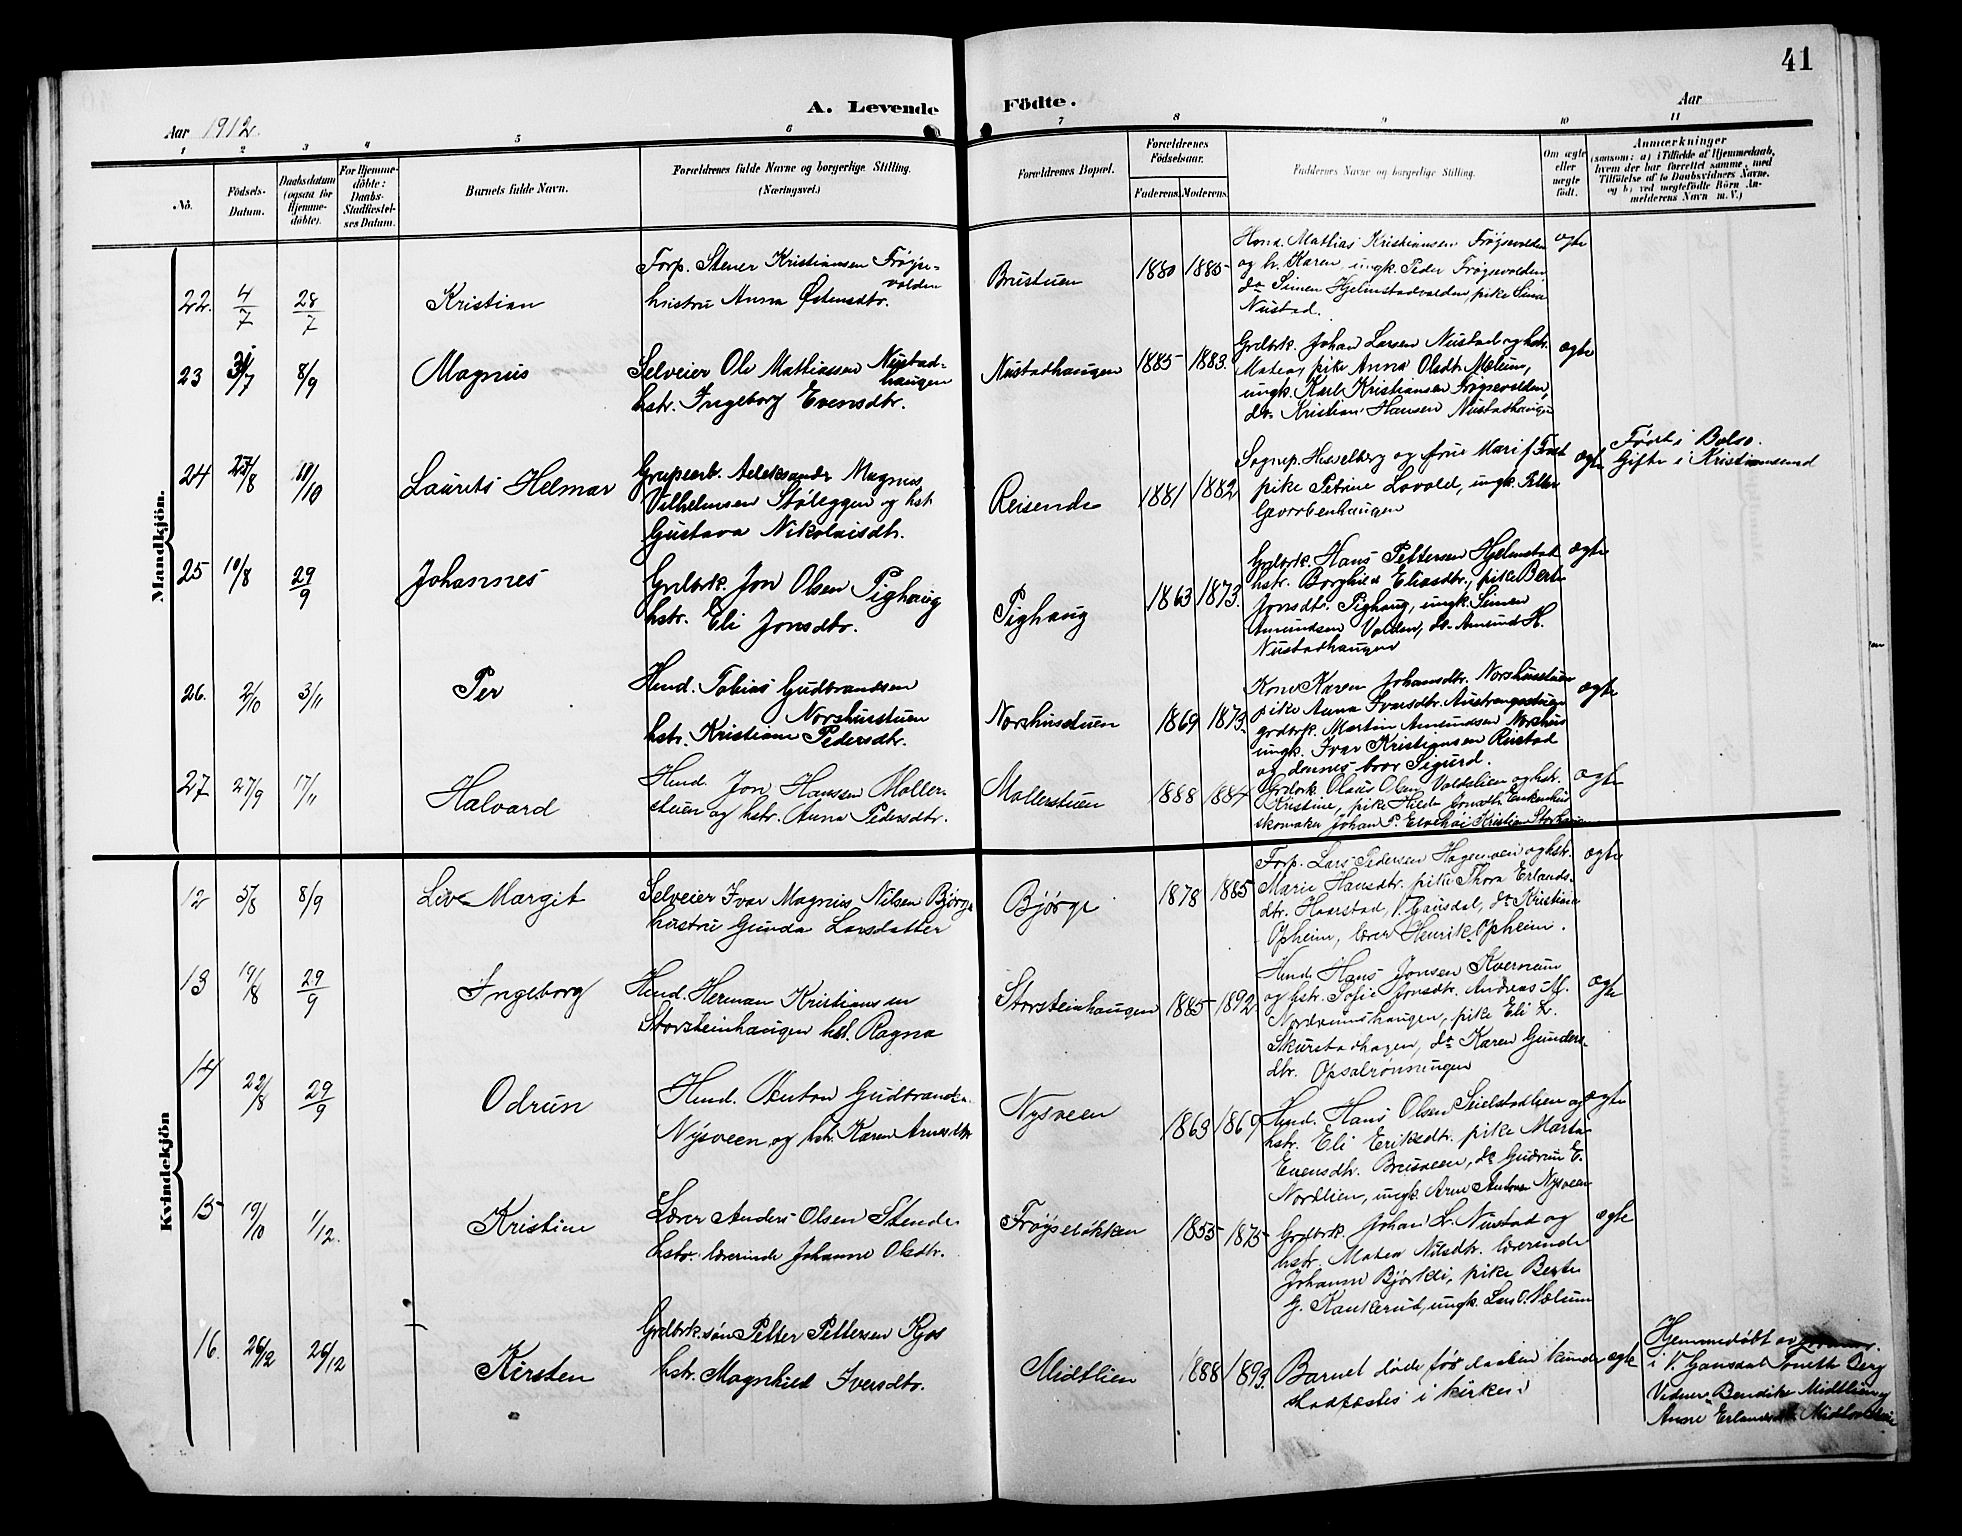 41
A. Levende Födte.
Aar 1912.
Aar
1 2 3 4 5 6 7 8 9 10 11
No.
Födsels-Datum.
Daabsdatum (ogsaa for Hjemmedöbte).
For Hjemmedöbte: Daabs-Stadfæstelses Datum.
Barnets fulde Navn.
Forældrenes fulde Navne og borgerlige Stilling. (Næringsvei.)
Forældrenes Bopæl.
Forældrenes Födselsaar.
Faderens. Moderens.
Faddernes Navne og borgerlige Stilling.
Om ægte eller uægte født.
Anmærkninger
(saasom: a) i Tilfælde af Hjemmedaab, hvem der har forrettet samme, med Tilföielse af to Daabsvidners Navne, og b) ved uægtefödte Börn Anmelderens Navn m. V.)
Mandkjön.
22. 4/7 28/7 Kristian
Forp. Stener Kristiansen Frøyse-
volden
hustru Anna Østensdtr.
Brustuen 1880 1885
Mathias Kristiansen Frøysevolden
og h. Karen, ungk. Peder Frøysevolden
do Simen Hjelmstadvolden, pike Sina
Nustad.
ægte
23 31/7 8/9 Magnus
Selveier Ole Mathiassen Nustad-
haugen
hstr. Ingeborg Evensdtr.
Nustadhaugen 1885 1883.
Grdbrk. Johan Larsen Nustad og hstr.
Matea, pike Anna Olsdtr. Mælum,
ungk. Karl Kristiansen Frøysevolden,
do Kristian Hansen Nustadhaugen
ægte
24 /8 /10 Laurits Helmar
Grupearb. Aleksander Magnus
Vilhelmsen Støleggen og hst.
Gustava Nikolaisdtr.
Reisende 1881 1882
Sognep. Hesselberg og frue Mari f. Fost
pike Petrine Lovold, ungk. Peter
ægte
Født i Bolsø.
Gifte i Kristiansund
25 10/8 29/9 Johannes
Grdbrk. Jon Olsen Pighaug
hstr. Eli Jonsdtr.
Pighaug 1863 1873.
Grdbrk. Hans Pettersen Hjelmstad
hstr. Borghild Eliasdtr., pike Berte
Jonsdtr. Pighaug, ungk. Simen
Amundsen Volden, do Amund H.
Nustadhaugen
ægte
26. 2/10 3/11 Per
Hmd. Tobias Gudbrandsen
Norshusstuen
hstr. Kristiane Pedersdtr.
Norshusstuen 1869 1873.
Kone Karen Johansdtr. Norshusstuen
pike Anna Ivarsdtr. Austrengsstuen
grdbrk. Martin Amundsen Norshus
ungk. Ivar Kristiansen Rustad
og dennes bror Sigurd.
ægte
27 27/9 17/11 Halvard
Hmd. Jon Hansen Moller-
stuen og hstr. Anna Pedersdtr.
Mollerstuen 1888 1884
Grdbrk Olaus Olsen Voldslien og hstr.
Kristine, pike Hilda
skomaker Johan P. Kristian
ægte
Kvindekjön
12 5/8 8/9 Liv Margit
Selveier Ivar Magnus Nilsen Bjørge
hustru Gunda Larsdatter
Bjørge 1878 1885
Forp. Lars Pedersen Hagemoen og hstr.
Marie Hansdtr. pike Thora Erlands-
dtr. Haarstad, V. Gausdal, do Kristian
Opheim, lærer Henrik Opheim.
ægte
13 19/8 29/9 Ingeborg
Hmd. Herman Kristiansen
Storsteinhaugen hst. Ragna
Storsteinhaugen 1885 1892
Hmd. Hans Jonsen Kvernum
og hstr. Sofie Jonsdtr. Andreas M.
Nordrumshaugen, pike Eli L.
Skurstadhagen, do Karen Gunders-
dtr. Opsalrønningen
ægte
14 22/8 29/9 Odrun
Hmd. Anton Gudbrandsn.
Nysveen og hstr. Karen Arnesdtr
Nysveen 1863 1869
Hmd. Hans Olsen Seielstadlien og
hstr. Eli Eriksdtr. pike Marta
Evensdtr. Breiveen, do Gudrun E.
Nordlien, ungk. Arne Antonsn Nysveen
ægte
15 19/10 1/12. Kristine
Lærer Anders Olsen Stende
hstr. lærerinde Johanne Olsdtr.
Frøyseløkken 1855 1875
Grdbrk. Johan L. Nustad og
hstr. Matea Nilsdtr. lærerinde
Johanne Bjørkli, pike Berte
G. Kankerud, ungk. Lars O. Mælum
ægte
16. 26/12 26/12 Kirsten
Grdbrk.søn Petter Pettersen Kjos
hstr. Magnhild Iversdtr.
Midtlien 1888 1893.
Barnet døde før daaben kunde
stadfæstes i kirken.
ægte
Hjemmedøbt av
i V. Gausdal Berg
Vidner Bendike Midtlien og
Anne Erlandsdtr.